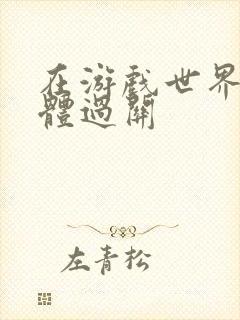 在游戲世界
體過關
左青松